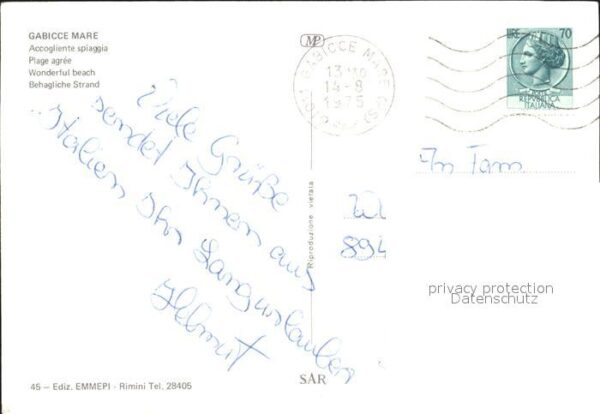 GABICCE MARE
Accogliente spiaggia
Plage agrée
Wonderful beach
Behagliche Strand
MP
GABICCE MARE
13
14-8
1975
LIRE 70
REPVBBLICA
ITALIANA
Viele Grüße
sendet Ihnen aus
Italien Ihr Langurlauber
Helmut
An Fam
W
894
Riproduzione vietata
privacy protection
Datenschutz
SAR
45 — Ediz. EMMEPI - Rimini Tel. 28405